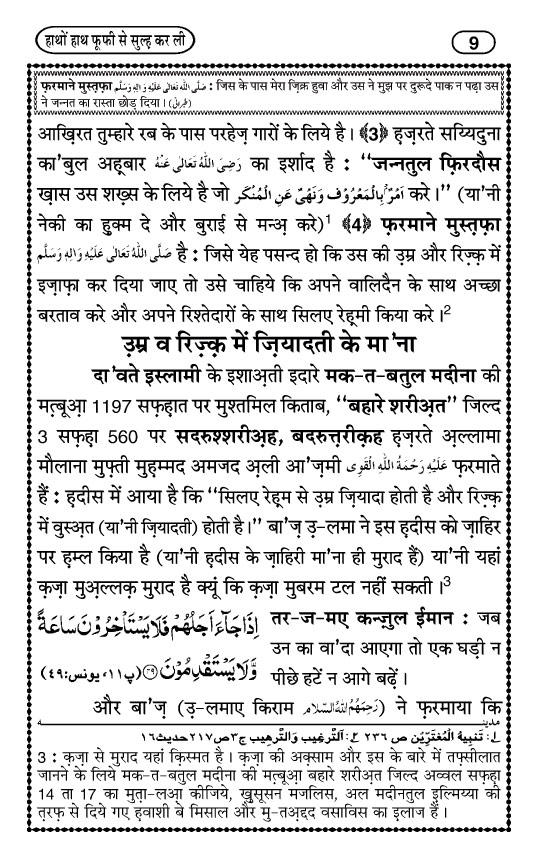 हाथों हाथ फूफी से सुल्ह कर ली
9
फ़रमाने मुस्तफ़ा صَلَّى اللهُ تَعَالٰى عَلَيْهِ وَاٰلِهٖ وَسَلَّم : जिस के पास मेरा ज़िक्र हुवा और उस ने मुझ पर दुरूदे पाक न पढ़ा उस
ने जन्नत का रास्ता छोड़ दिया। (طبرانی)
आख़िरत तुम्हारे रब के पास परहेज़ गारों के लिये है। ﴾3﴿ हज़रते सय्यिदुना
का'बुल अह़्बार رَضِىَ اللهُ تَعَالٰى عَنْهُ का इर्शाद है : ‘‘जन्नतुल फ़िरदौस
ख़ास उस शख़्स के लिये है जो اَمْرٌۢ بِالْمَعْرُوْف وَنَهْىٌ عَنِ الْمُنْكَر करे।’’ (या'नी
नेकी का हुक्म दे और बुराई से मन्अ़ करे)1 ﴾4﴿ फ़रमाने मुस्तफ़ा
صَلَّى اللهُ تَعَالٰى عَلَيْهِ وَاٰلِهٖ وَسَلَّم है : जिसे येह पसन्द हो कि उस की उ़म्र और रिज़्क़ में
इज़ाफ़ा कर दिया जाए तो उसे चाहिये कि अपने वालिदैन के साथ अच्छा
बरताव करे और अपने रिश्तेदारों के साथ सिलए रेह़्मी किया करे।2
उ़म्र व रिज़्क़ में ज़ियादती के मा'ना
दा'वते इस्लामी के इशाअ़ती इदारे मक-त-बतुल मदीना की
मत़्बूआ़ 1197 सफ़ह़ात पर मुश्तमिल किताब, ‘‘बहारे शरीअ़त’’ जिल्द
3 सफ़ह़ा 560 पर सदरुश्शरीअ़ह, बदरुत़्त़रीक़ह हज़रते अ़ल्लामा
मौलाना मुफ़्ती मुह़म्मद अमजद अ़ली आ'ज़मी عَلَيْهِ رَحْمَةُ اللهِ الْقَوِى फ़रमाते
हैं : ह़दीस में आया है कि ‘‘सिलए रेह़्म से उ़म्र ज़ियादा होती है और रिज़्क़
में वुस्अ़त (या'नी ज़ियादती) होती है।’’ बा'ज़ उ़-लमा ने इस ह़दीस को ज़ाहिर
पर ह़म्ल किया है (या'नी ह़दीस के ज़ाहिरी मा'ना ही मुराद हैं) या'नी यहां
क़ज़ा मुअ़ल्लक़ मुराद है क्यूं कि क़ज़ा मुबरम टल नहीं सकती।3
اِذَا جَآءَ اَجَلُهُمْ فَلَا یَسْتَاْخِرُوْنَ سَاعَةً
وَّلَا یَسْتَقْدِمُوْنَ ﴿۴۹﴾ (پ۱۱، یونس:۴۹)
तर-ज-मए कन्ज़ुल ईमान : जब
उन का वा'दा आएगा तो एक घड़ी न
पीछे हटें न आगे बढ़ें।
और बा'ज़ (उ़-लमाए किराम رَحِمَهُمُ اللهُ السَّلَام) ने फ़रमाया कि
مدينه
۱: تَنبِيهُ الْمُغْتَرِّيْن ص ۲۳۶ ۲: اَلتَّرغِيب وَالتَّرهِيب ج۳ص۲۱۷حديث۱۶
3 : क़ज़ा से मुराद यहां क़िस्मत है। क़ज़ा की अक़्साम और इस के बारे में तफ़्सीलात
जानने के लिये मक-त-बतुल मदीना की मत़्बूआ़ बहारे शरीअ़त जिल्द अव्वल सफ़ह़ा
14 ता 17 का मुत़ा-लआ़ कीजिये, ख़ुसूसन मजलिस, अल मदीनतुल इ़ल्मिय्या की
त़रफ़ से दिये गए ह़वाशी बे मिसाल और मु-तअ़द्दद वसाविस का इलाज हैं।